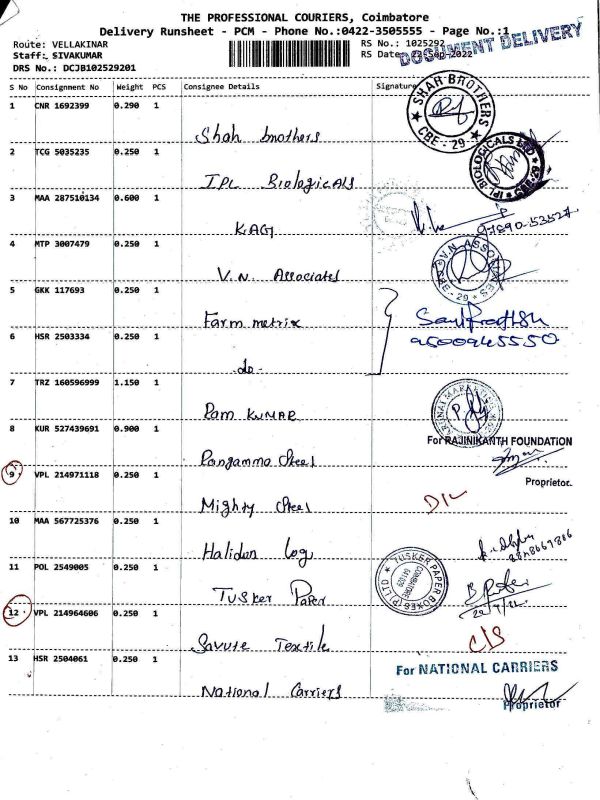 THE PROFESSIONAL COURIERS, Coimbatore
Delivery Runsheet - PCM - Phone No.:0422-3505555 - Page No.:1
DOCUMENT DELIVERY
Route: VELLAKINAR
RS No.: 1025292
Staff: SIVAKUMAR
RS Date: 22-Sep-2022
DRS No.: DCJB102529201
S No Consignment No Weight PCS Consignee Details Signature
1 CNR 1692399 0.290 1
Shah brothers
SHAH BROTHERS CBE - 29
2 TCG 5035235 0.250 1
IPL Biologicals
3 MAA 287510134 0.600 1
KAG
4 MTP 3007479 0.250 1
V.N. Associates
5 GKK 117693 0.250 1
Farm metrix
6 HSR 2503334 0.250 1
9500945550
-do-
7 TRZ 160596999 1.150 1
Ram KUMAR
8 KUR 527439691 0.900 1
For RAJINIKANTH FOUNDATION
Rangamma Steel
9 VPL 214971118 0.250 1
Proprietor.
Mighty Steel
D/L
10 MAA 567725376 0.250 1
Halidon Log
11 POL 2549005 0.250 1
TUSKER PAPER BOXES (P) LTD
COIMBATORE
Tusker Paper
12 VPL 214964606 0.250 1
Savute Textile
C/S
13 HSR 2504061 0.250 1
For NATIONAL CARRIERS
National Carriers
Proprietor